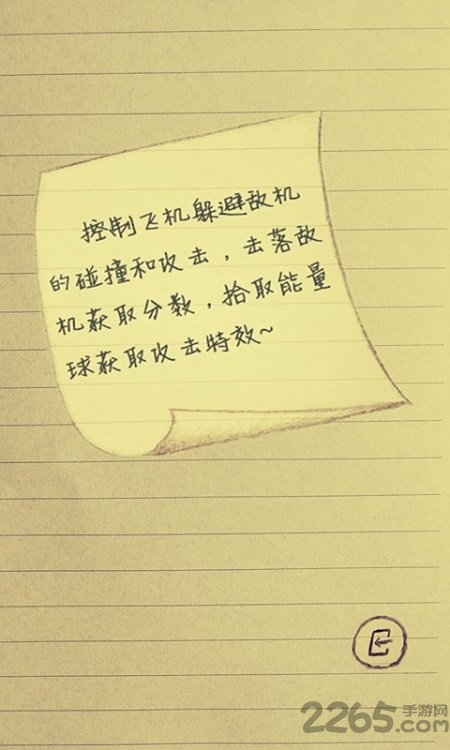 控制飞机躲避敌机
的碰撞和攻击，击落敌
机获取分数，拾取能量
球获取攻击特效~
2265.com
手游网